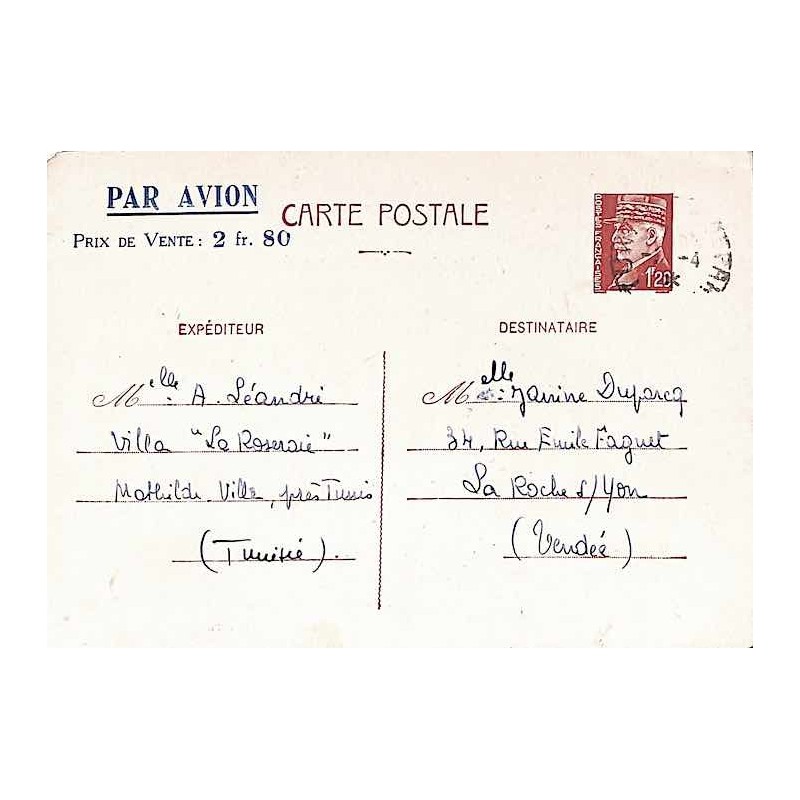 PAR AVION
PRIX DE VENTE : 2 fr. 80
CARTE POSTALE
POSTES FRANÇAISES
1F20
-4
EXPÉDITEUR
Melle A. Léandri
Villa "La Roseraie"
Mathilde-Ville, près Tunis
(Tunisie).
DESTINATAIRE
Melle Janine Duparcq
34, Rue Emile Faguet
La Roche s/Yon
(Vendée)